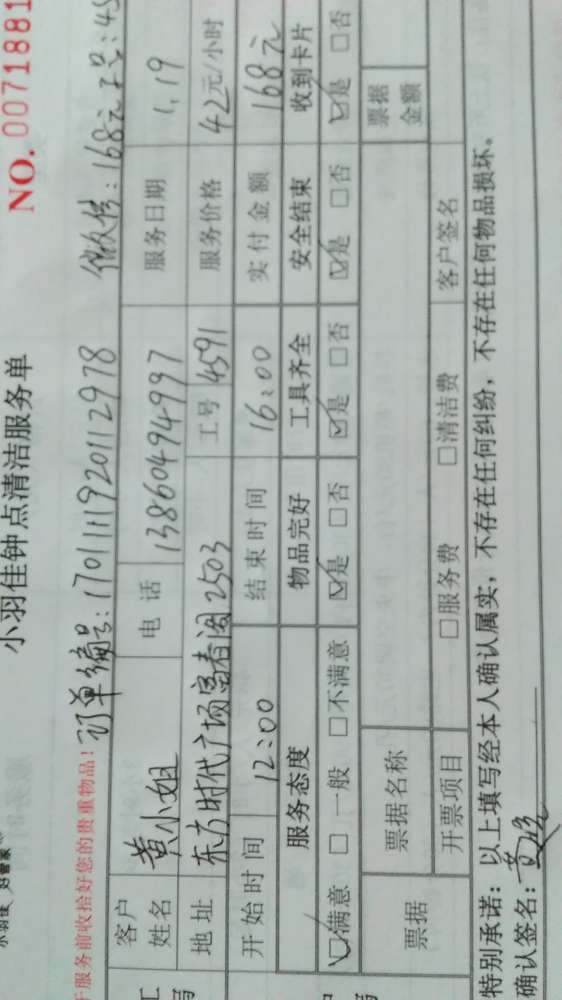 小羽佳 好管家
小羽佳钟点清洁服务单
NO. 0071881
服务前收拾好您的贵重物品！ 订单编号：170111920112978 微众传：168元 工号：45
客户姓名 黄小姐 电话 13860494997 服务日期 1.19
地址 东方时代广场富春阁2503 工号 4591 服务价格 42元/小时
开始时间 12:00 结束时间 16:00 实付金额 168元
服务态度 物品完好 工具齐全 安全结束 收到卡片
☑满意 □一般 □不满意 ☑是 □否 ☑是 □否 ☑是 □否 ☑是 □否
票据 票据名称 票据金额
开票项目 □服务费 □清洁费 客户签名
特别承诺：以上填写经本人确认属实，不存在任何纠纷，不存在任何物品损坏。
确认签名：黄